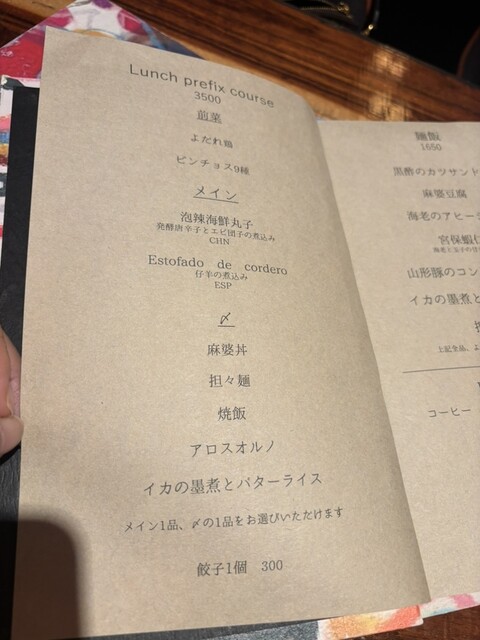 Lunch prefix course
3500
前菜
よだれ鶏
ピンチョス9種
メイン
泡辣海鮮丸子
発酵唐辛子とエビ団子の煮込み
CHN
Estofado de cordero
仔羊の煮込み
ESP
〆
麻婆丼
担々麺
焼飯
アロスオルノ
イカの墨煮とバターライス
メイン1品、〆の1品をお選びいただけます
餃子1個 300
麺飯
1650
黒酢のカツサンド
麻婆豆腐
海老のアヒー
宮保蝦仁
山形豚のコン
イカの墨煮と
上記全品、よ
コーヒー